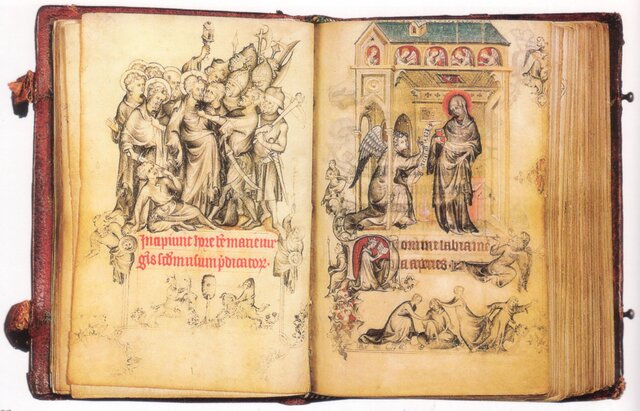 Incipiunt hore bē marie uir
gis scd̄m usum p̄dicatoꝝ.
Domine labia me
a aperies.